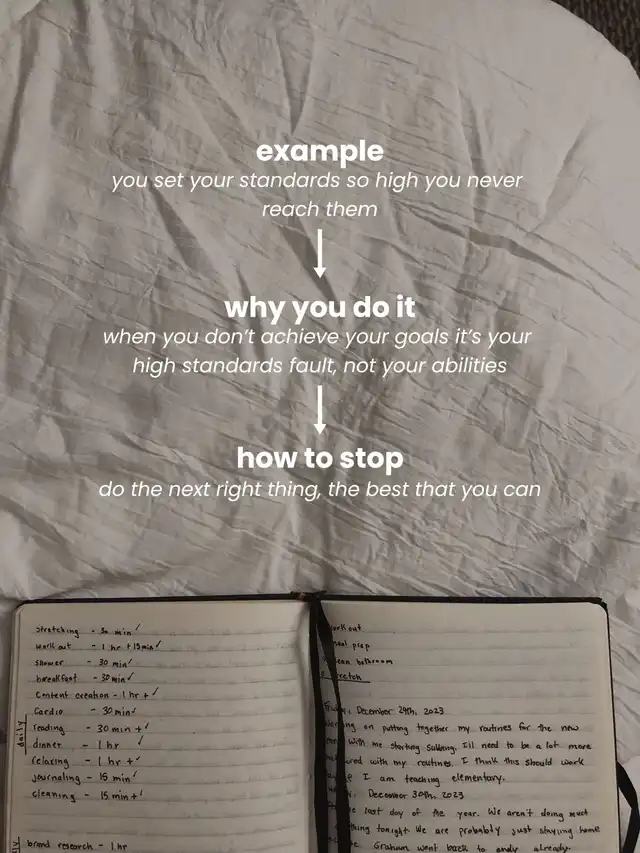 example
you set your standards so high you never
reach them
why you do it
when you don't achieve your goals it's your
high standards fault, not your abilities
how to stop
do the next right thing, the best that you can
stretching - 30 min ✓
work out - 1 hr + 15min ✓
shower - 30 min ✓
breakfast - 30 min ✓
content creation - 1 hr + ✓
Cardio - 30 min ✓
reading - 30 min + ✓
dinner - 1 hr ✓
relaxing - 1 hr + ✓
journaling - 15 min ✓
cleaning - 15 min + ✓
daily
brand research - 1 hr
prep
bathroom
December 29th, 2023
on putting together my routines for the new
with me starting subbing. I'll need to be a lot more
with my routines. I think this should work
I am teaching elementary.
December 30th, 2023
last day of the year. We aren't doing much
tonight. We are probably just staying home
Graham went back to andy already.